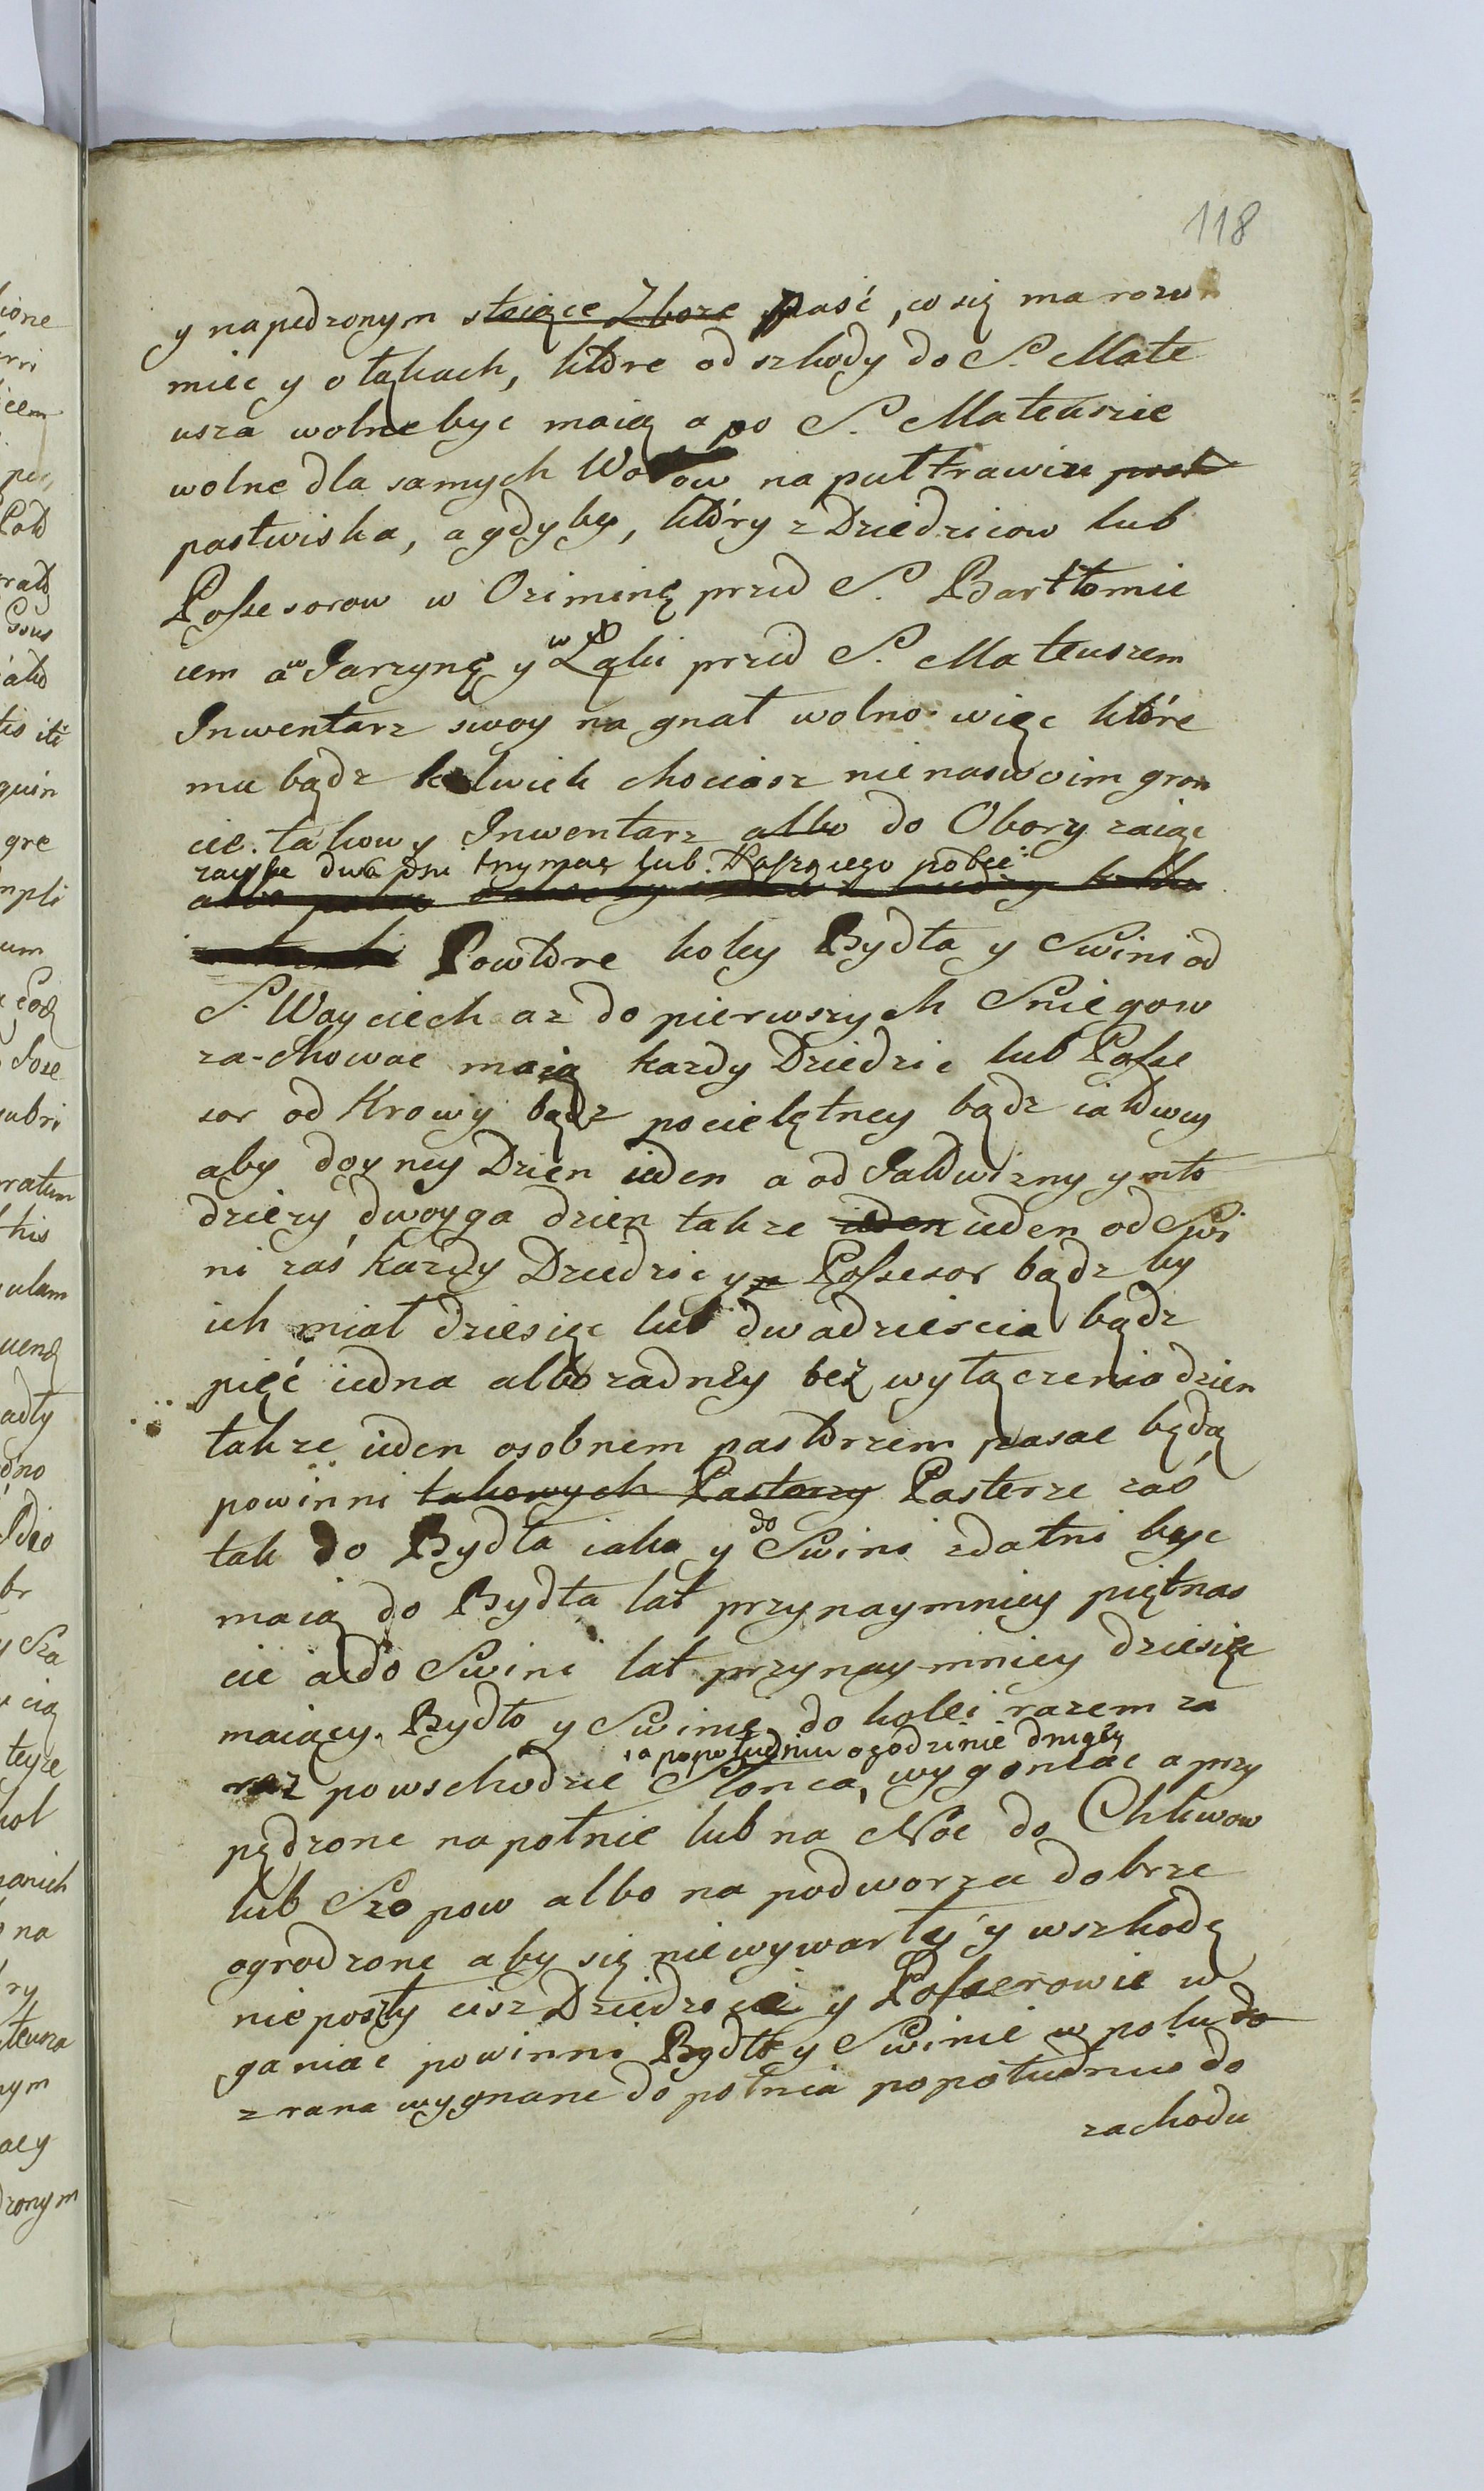 118
y napedzonym stoiące Zboże paść, co się ma rozu
mieć y o łąkach, które od szkody do S. Mate
usza wolne byc maią a po S. Mateuszie
wolne dla samych Wołow na puł trawiu
pastwiska, a gdyby, który z Dziedzicow lub
Possesorow w Oziminę przed S. Bartłomie
iem a w Jarzynę y w Łąki przed S. Mateuszem
Inwentarz swoy na gnał wolno więc które
mu bądz kolwiek chociasz nie naswoim gron
cie. takowy Inwentarz albo do Obory zaiąc
zaięte dwa dni trzymac lub Pasącego pobić
Powtóre koley Bydła y Swini od
S. Woyciech az do pierwszych Sniegow
za-chowac maią kazdy Dziedzic lub Posse
sor od Krowy bądz pocielętney bądz iałowey
aby doyney Dzien ieden a od Jałowizny y mło
dziezy dwoyga dzien takze ieden ieden od Swi
ni zaś kazdy Dziedzic y Possesor bądz by
ich miał dziesięc lub dwadziescia bądz
pięć iedna albo zadney bez wyłączenia dzien
takze ieden osobnem pastorzem pasac będą
powinni takowych Pasterzy Pasterze zaś
tak do Bydła iako y do Swini zdatni byc
maią do Bydła lat przynaymniey piętnas
cie a do Swini lat przynay-mniey dziesięc
maiący. Bydło y Swinie do kolei razem za
, a popołudniu o godzinie drugiey
raz powschodzie Słonca, wygoniac a przy
pędzone napołnie lub na Noc do Chliwow
lub Szopow albo na podworza dobrze
ogrodzone aby się niewywarły y wszkodę
nieposzły cisz Dziedzice y Possesorowie w
ganiac powinni Bydło y Swinie w polu do
zrana wygnane do połnia popołudniu do
zachodu